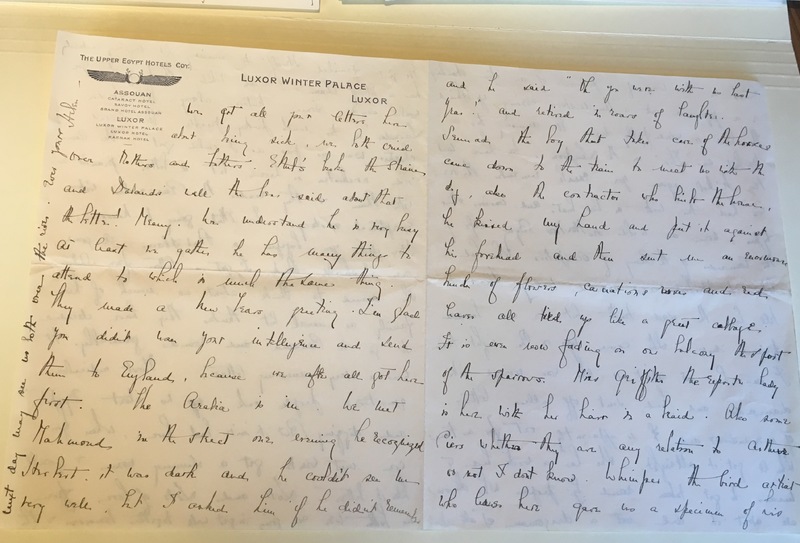 THE UPPER EGYPT HOTELS COY.
ASSOUAN
CATARACT HOTEL
SAVOY HOTEL
GRAND HOTEL ASSOUAN
LUXOR
LUXOR WINTER PALACE
LUXOR HOTEL
KARNAK HOTEL
LUXOR WINTER PALACE
LUXOR
We got all your letters here
about being sick, we both cried
over Mothers and Fathers. That's broke the strain
and all the boy said about that
the letter! Many. We understand he is very busy
At least we gather he has many things to
attend to which is much the same thing.
They made a New Years greeting. I'm glad
you didn't your intelligence and send
them to England, because we after all got here
first. The Arabia is in. We met
Mahmoud in the street one evening he recognized
Herbert. it was dark and he couldn't see me
very well. but I asked him if he didn't remember
next day may see us both over the river. Your
and he said "Oh you were with us last
Year" and retired in roars of laughter.
the boy that takes care of the horses
came down to the train to meet us with the
dig, also the contractor who the house,
he kissed my hand and put it against
his forehead and then sent us an enormous
bunch of flowers, carnations roses and red
all tied up like a great cabbage
It is even now fading on our balcony the sport
of the sparrows. Miss Griffith the lady
is here with her is a maid. Also some
Piers whether they are any relation to
or not I don't know. Whimper the bird artist
who lives here gave us a specimen of his